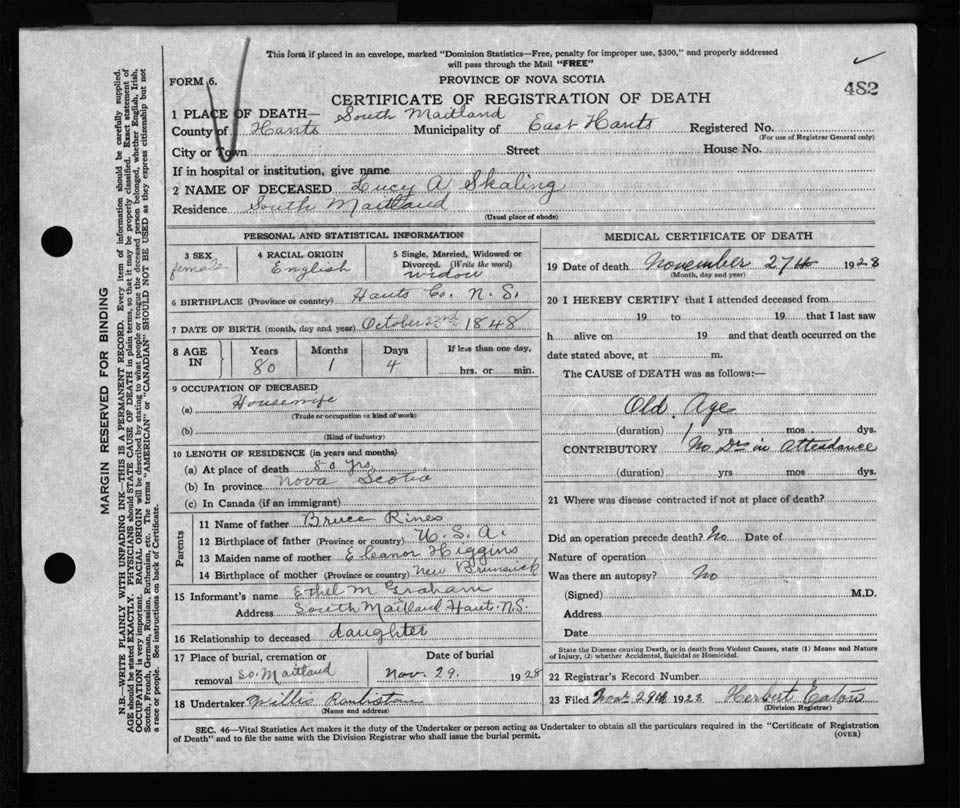 This form if placed in an envelope, marked "Dominion Statistics—Free, penalty for improper use, $300," and properly addressed
will pass through the Mail "FREE"
FORM 6.
PROVINCE OF NOVA SCOTIA
482
CERTIFICATE OF REGISTRATION OF DEATH
1 PLACE OF DEATH— South Maitland
County of Hants Municipality of East Hants Registered No.
(For use of Registrar General only)
City or Town Street House No.
If in hospital or institution, give name
2 NAME OF DECEASED Lucy A Skaling
Residence South Maitland
(Usual place of abode)
PERSONAL AND STATISTICAL INFORMATION
3 SEX 4 RACIAL ORIGIN 5 Single, Married, Widowed or
Divorced. (Write the word)
female English widow
6 BIRTHPLACE (Province or country) Hants Co. N. S.
7 DATE OF BIRTH (month, day and year) October 22nd 1848
8 AGE IN Years Months Days If less than one day,
80 1 4 hrs. or min.
9 OCCUPATION OF DECEASED
(a) Housewife
(Trade or occupation or kind of work)
(b)
(Kind of industry)
10 LENGTH OF RESIDENCE (in years and months)
(a) At place of death 80 yrs.
(b) In province Nova Scotia
(c) In Canada (if an immigrant)
Parents
11 Name of father Bruce Rines
12 Birthplace of father (Province or country) U. S. A.
13 Maiden name of mother Eleanor Higgins
14 Birthplace of mother (Province or country) New Brunsick
15 Informant's name Ethel M Graham
Address South Maitland Hant. N.S.
16 Relationship to deceased daughter
17 Place of burial, cremation or Date of burial
removal So. Maitland Nov. 29. 1928
18 Undertaker Willis
(Name and address)
MEDICAL CERTIFICATE OF DEATH
19 Date of death November 27th 1928
(Month, day and year)
20 I HEREBY CERTIFY that I attended deceased from
19 to 19 that I last saw
h alive on 19 and that death occurred on the
date stated above, at m.
The CAUSE of DEATH was as follows:—
Old Age
(duration) 1 yrs mos dys.
CONTRIBUTORY No Drs in Attendance
(duration) yrs mos dys.
21 Where was disease contracted if not at place of death?
Did an operation precede death? No Date of
Nature of operation
Was there an autopsy? No
(Signed) M.D.
Address
Date
State the Disease causing Death, or in death from Violent Causes, state (1) Means and Nature
of Injury, (2) whether Accidental, Suicidal or Homicidal.
22 Registrar's Record Number
23 Filed Nov. 29th 1928 Herbert Eaton
(Division Registrar)
SEC. 46—Vital Statistics Act makes it the duty of the Undertaker or person acting as Undertaker to obtain all the particulars required in the "Certificate of Registration
of Death" and to file the same with the Division Registrar who shall issue the burial permit.
(OVER)
MARGIN RESERVED FOR BINDING
N.B.—WRITE PLAINLY WITH UNFADING INK—THIS IS A PERMANENT RECORD. Every item of information should be carefully supplied.
AGE should be stated EXACTLY. PHYSICIANS should STATE CAUSE OF DEATH in plain terms, so that it may be properly classified. Exact statement of
OCCUPATION is very important. RACIAL ORIGIN will be described by stating to what people or tongue the deceased person belonged, whether English, Irish,
Scotch, French, German, Russian, Ruthenian, etc. The terms "AMERICAN" or "CANADIAN" SHOULD NOT BE USED as they express citizenship but not
a race or people. See instructions on back of Certificate.